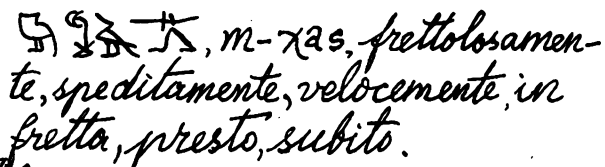 , m-χas, frettolosamen-
te, speditamente, velocemente, in
fretta, presto, subito.